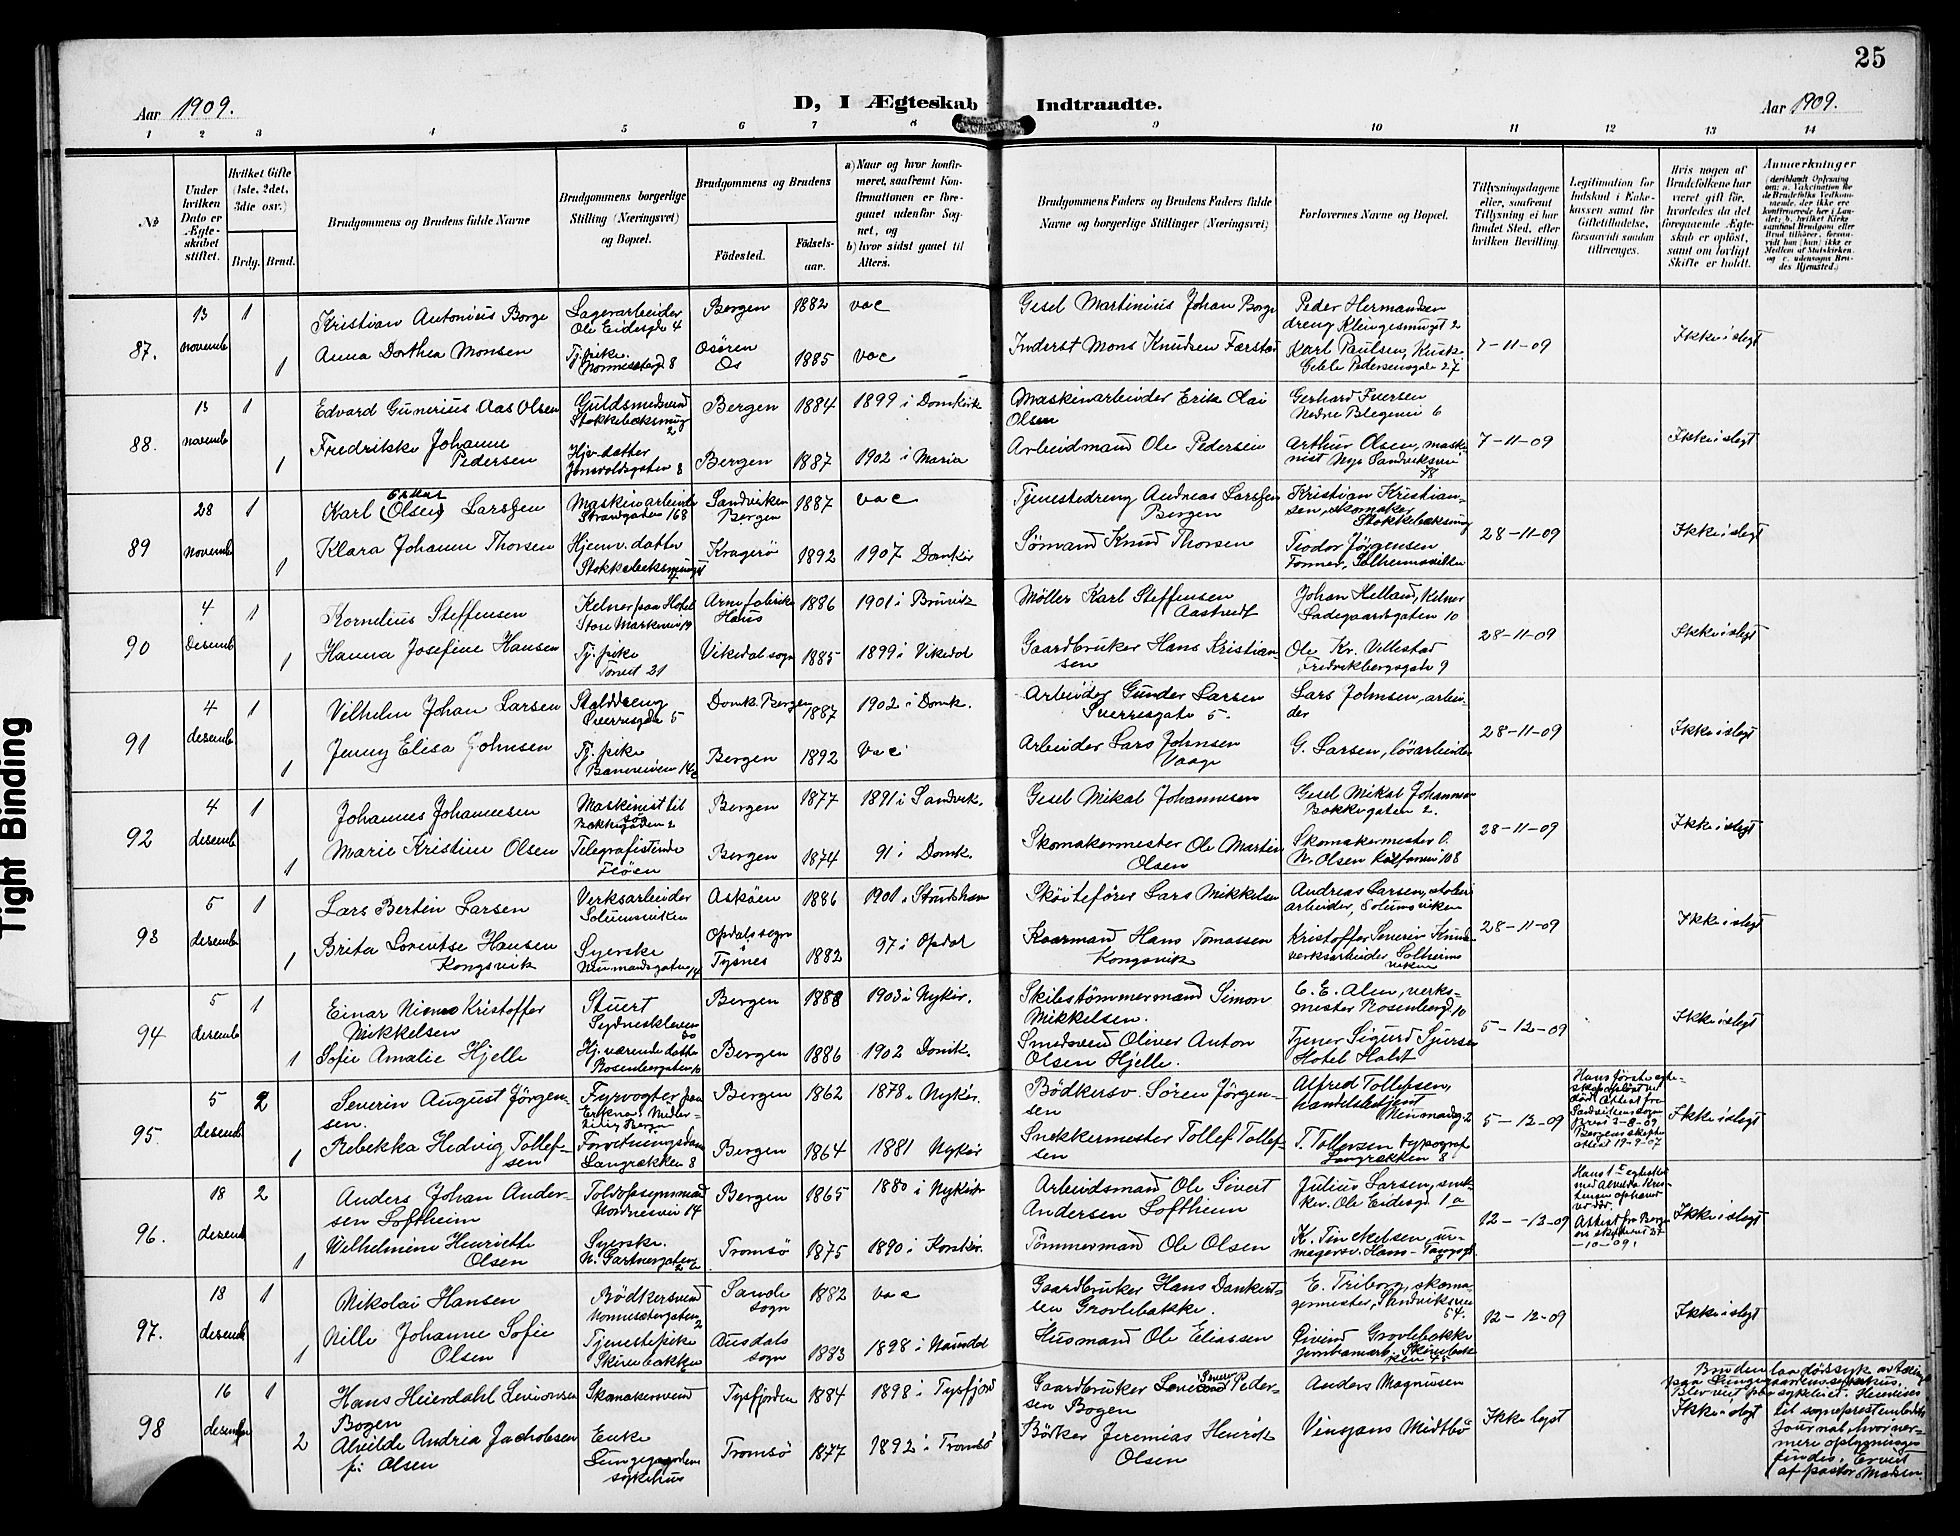 25
Aar 1909.
D, I Ægteskab Indtraadte.
Aar 1909.
1 2 3 4 5 6 7 8 9 10 11 12 13 14
№
Under hvilken Dato er Ægteskabet stiftet.
Hvilket Gifte (1ste, 2det, 3die osv.)
Brdg. Brud.
Brudgommens og Brudens fulde Navne
Brudgommens borgerlige Stilling (Næringsvei) og Bopæl.
Brudgommens og Brudens
Fødested.
Fødselsaar.
a) Naar og hvor konfirmeret, saafremt Konfirmationen er foregaaet udenfor Sognet, og
b) hvor sidst gaaet til Alters.
Brudgommens Faders og Brudens Faders fulde Navne og borgerlige Stillinger (Næringsvei)
Forlovernes Navne og Bopæl.
Tillysningsdagene eller, saafremt Tillysning ei har fundet Sted, efter hvilken Bevilling.
Legitimation for Indskud i Enkekassen samt for Giftetilladelse, forsaavidt saadan tiltrænges.
Hvis nogen af Brudefolkene har været gift før, hvorledes da det foregaaende Ægteskab er opløst, samt om lovligt Skifte er holdt.
Anmerkninger
87. 13 novemb 1 Kristian Antonius Borge Lagerarbeider Ole Eidesgt 4 Bergen 1882 vac Gesel Martinius Johan Borge Peder Hermandsen dreng Klingesmuget 2
1 Anna Dorthea Monsen Tj. pike. Nonnesæterg 8 Osøren Os 1885 vac Inderst Mons Knudsen Færstad Karl Paulsen, Kusk Geble Pedersensgate 27 7-11-09 Ikke i slegt
88. 13 novemb 1 Edvard Gunerius Aas Olsen Guldsmedsvend Stokkebæksmug 2 Bergen 1884 1899 i Domkirk Maskinarbeider Erik Olai Olsen Gerhard Iversen Nedre Blegevei 6
1 Fredrikke Johanne Pedersen Hjv. datter 8 Bergen 1887 1902 i Maria Arbeidmand Ole Pedersen Arthur Olsen, maskinist Nye Sandviksvei 78 7-11-09 Ikke i slegt
89 28 novemb 1 Karl Oskar (Olsen) Larssen Maskinarbeide Strandgaten 168 Sandviken Bergen 1887 vac Tjenestedreng Andreas Larssen Bergen Kristian Kristiansen, skomaker Stokkebæksmug
1 Klara Johanne Thorsen Hjemv. datter Stokkebæksmuget Kragerø 1892 1907 Domkir Sømand Knud Thorsen Teodor Jørgensen Former, Solheimsviken 28-11-09 Ikke i slegt
90 4 desemb 1 Kornelius Steffensen Kelner paa Hotel Store Markevei 19 Arne fabrikk Haus 1886 1901 i Bruvik Møller Karl Steffensen Aastvedt Johan Helland, Kelner Ladegaardsgaten 10
1 Hanna Josefine Hansen Tj. pike Torvet 21 Vikedal sogn 1885 1899 i Vikedal Gaardbruker Hans Kristiansen Ole Kr. Vellestad Fredrikbergsgate 9 28-11-09 Ikke i slegt
91 4 desemb 1 Vilhelm Johan Larsen Stalddreng Sverresgate 5 Domk. Bergen 1887 1902 i Domk. Arbeider Gunder Larsen Sverresgate 5. Lars Johnsen, arbeider
1 Jenny Elisa Johnsen Tj. pike Baneveien 14c Bergen 1892 Vac Arbeider Lars Johnsen Vaage G. Larsen, løsarbeider 28-11-09 Ikke i slegt
92 4 desemb 1 Johannes Johannesen Maskinist til søs Bakkegaden 2 Bergen 1877 1891 i Sandvik. Gesel Mikal Johannesen Gesel Mikal Johannesen Bakkegaten 2.
1 Marie Kristine Olsen Telegrafistinde Fløen Bergen 1874 91 i Domk. Skomakermester Ole Martin Olsen Skomakermester O. M. Olsen Kalfarvei 108 28-11-09 Ikke i slegt
93 5 desemb 1 Lars Bertin Larsen Verksarbeider Solumsviken Askøen 1886 1901 i Strudshavn Skøitefører Lars Mikkelsen Andreas Larsen, arbeider, Solumsviken
1 Brita Lorentse Hansen Kongsvik Syerske Neumandsgaten 14 Opdals sogn i Tysnes 1882 97 i Opdal Kaarmand Hans Tomassen Kongsvik Kristoffer Severin Knud verksarbeider Solheimsviken 28-11-09 Ikke i slegt
94 5 desemb 1 Einar Kristoffer Mikkelsen Stuert Sydneskleven 20 Bergen 1888 1903 i Nykir. Skibstømmermand Simon Mikkelsen. C. E. Alen, verksmester Rosenbergd. 10
1 Sofie Amalie Hjelle Hj. værende datter Rosenbergaten 10 Bergen 1886 1902 Domk. Smedsvend Oliver Anton Olsen Hjelle. Tjener Sigurd Sjursen Hotel Holst 5-12-09 Ikke i slegt
95. 5 desemb 2 Severin August Jørgensen. Fyrvogter paa Bergen 1862 1878 i Nykir. Bødkersv. Søren Jørgensen Alfred Tollefsen, handelsbetjent Neumandsg 2
1 Rebekka Hedvig Tollefsen Forretningsdame Langrækken 8 Bergen 1864 1881 Nykir Snekkermester Tollef Tollefsen T. Tollefsen typograf Langrækken 8 5-12-09 Hans første egteskap opløst ved død. Attest fra Sandvikens sogn 3-8-09 Bergens skifteattest 19-9-07 Ikke i slegt
96. 18 desemb 2 Anders Johan Andersen Softheim Toldopsynsmand Nordnesvei 14 Bergen 1865 1880 i Nykirk Arbeidsmand Ole Sivert Andersen Softheim Julius Larsen, snekker. Ole Eidesgd. 1a
1 Vilhelmine Henriette Olsen Syerske. N. Gartnergaten Tromsø 1875 1890 i Korskir. Tømmermand Ole Olsen K. Tinckelsen, urmagersv. Hans Tangsgt 12-12-09 Hans 1ste egteskab med Alvilda Kristensen ophævet ved død. Attest fra Bergens skifteret 21-10-09. Ikke i slegt
97. 18 desemb 1 Nikolai Hansen Bødkersvend Nonnesætergaten 2 Sande sogn 1882 vac Gaardbruker Hans Dankertsen Grovlebakke. E. Triborg, skomagermester, Sandviksvei 54.
1 Nille Johanne Sofie Olsen Tjenestepike Skivebakken Ausdals sogn 1883 1898 i Naundal Husmand Ole Eliassen Eivind Grovlebakke jernbanearb. Skivebakken 45 12-12-09 Ikke i slegt
98 16 desember 1 Hans Heierdahl Levionsen Bogen Skomakersvend Tysfjorden 1884 1898 i Tysfjord Gaardbruker Pedersen Bogen Anders Magnusen
2 Alvilde Andria Jachobsen f. Olsen Enke Lungegaardens sykehus Tromsø 1877 1892 i Tromsø Bødker Jeremias Henrik Olsen Vinsjans Midtbø Ikke lyst Ikke i slegt
Bruden laa dødssyk av tæring paa Lungegaardens sykehus. Blev viet paa sykehuset. Henvises til sogneprestembedets Journal, hvor nærmere oplysninger findes. Er viet af pastor Madsen.
Tight Binding